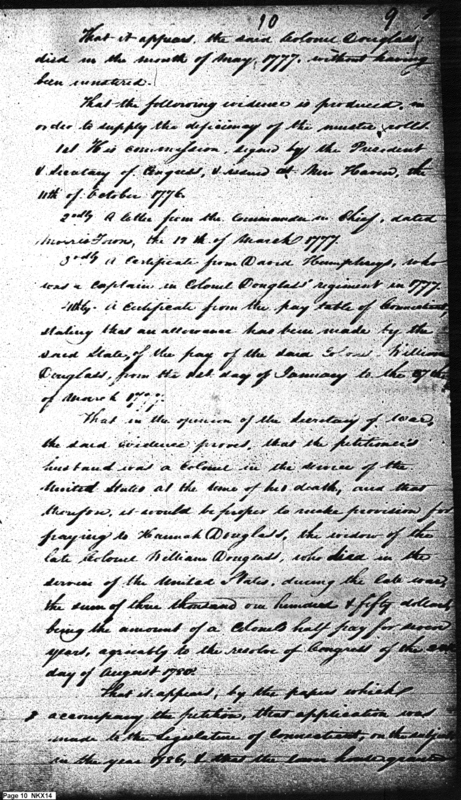 10 9
That it appears, the said Colonel Douglass,
died in the month of May, 1777, without having
been mustered.
That the following evidence is produced, in
order to supply the deficiency of the muster rolls.
1st His commission, signed by the President
& Secretary of Congress, & issued at New Haven, the
11th of October 1776.
2ndly A letter from the Commander in Chief, dated
Morris Town, the 17th of March 1777.
3rdly A Certificate from David Humphreys, who
was a Captain in Colonel Douglass' regiment in 1777.
4thly. A Certificate from the pay table of Connecticut,
stating that an allowance has been made by the
said State, of the pay of the said Colonel William
Douglass, from the 1st day of January to the 27th
of March 1777.
That in the opinion of the Secretary of War,
the said evidence proves, that the petitioner's
husband was a Colonel in the service of the
United States at the time of his death, and that
therefore, it would be proper to make provision for
paying to Hannah Douglass, the widow of the
late Colonel William Douglass, who died in the
service of the United States, during the late war,
the sum of three thousand one hundred & fifty dollars
being the amount of a Colonel's half pay for seven
years, agreeably to the resolve of Congress of the
day of August 1780.
That it appears, by the papers which
accompany the petition, that application was
made to the Legislature of Connecticut, on the subject
in the year 1786, & that the lower house granted
Page 10 NKX14